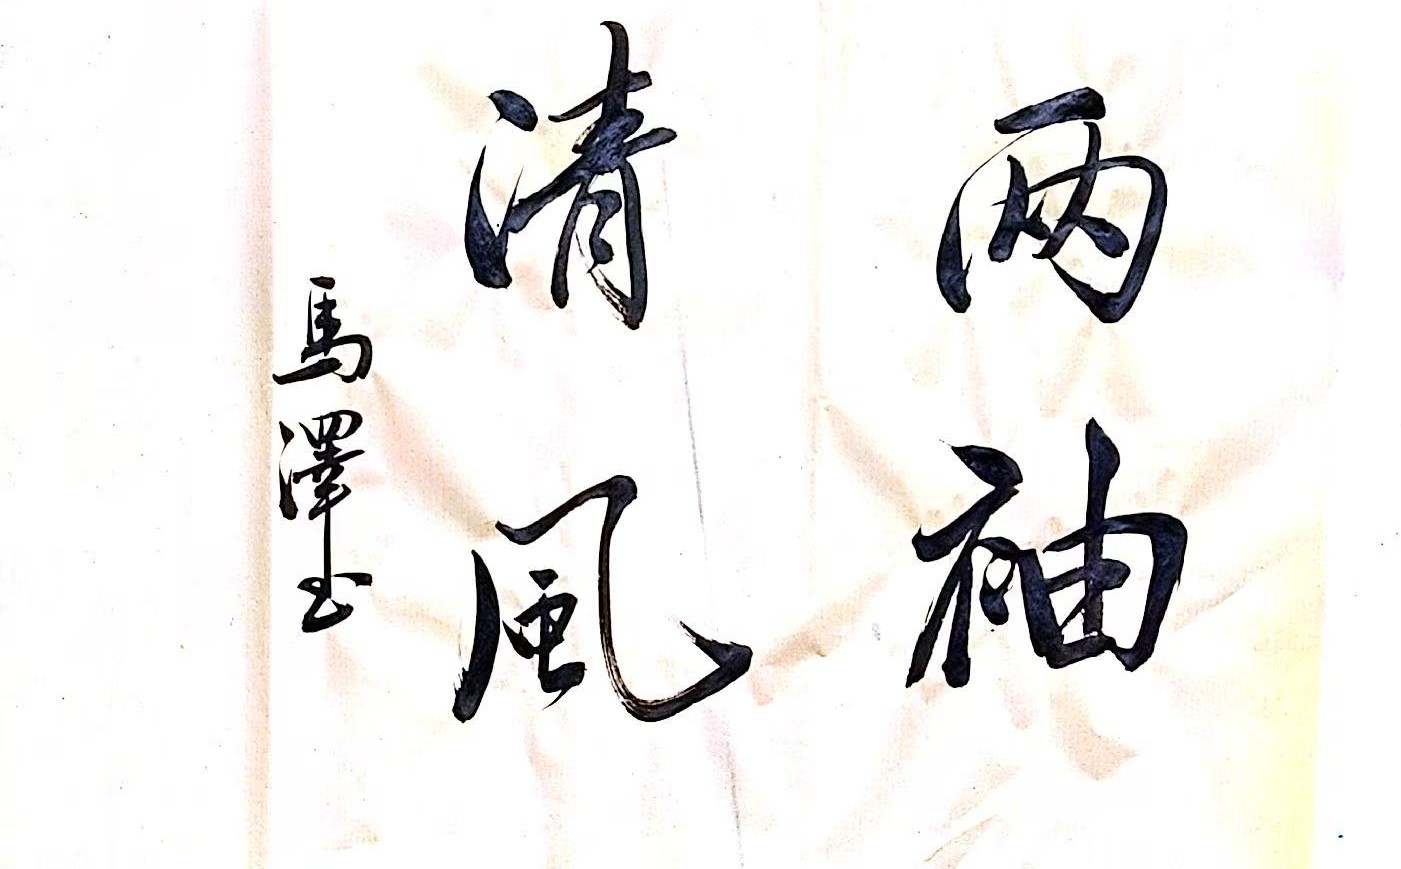 两袖
清風
馬澤玉